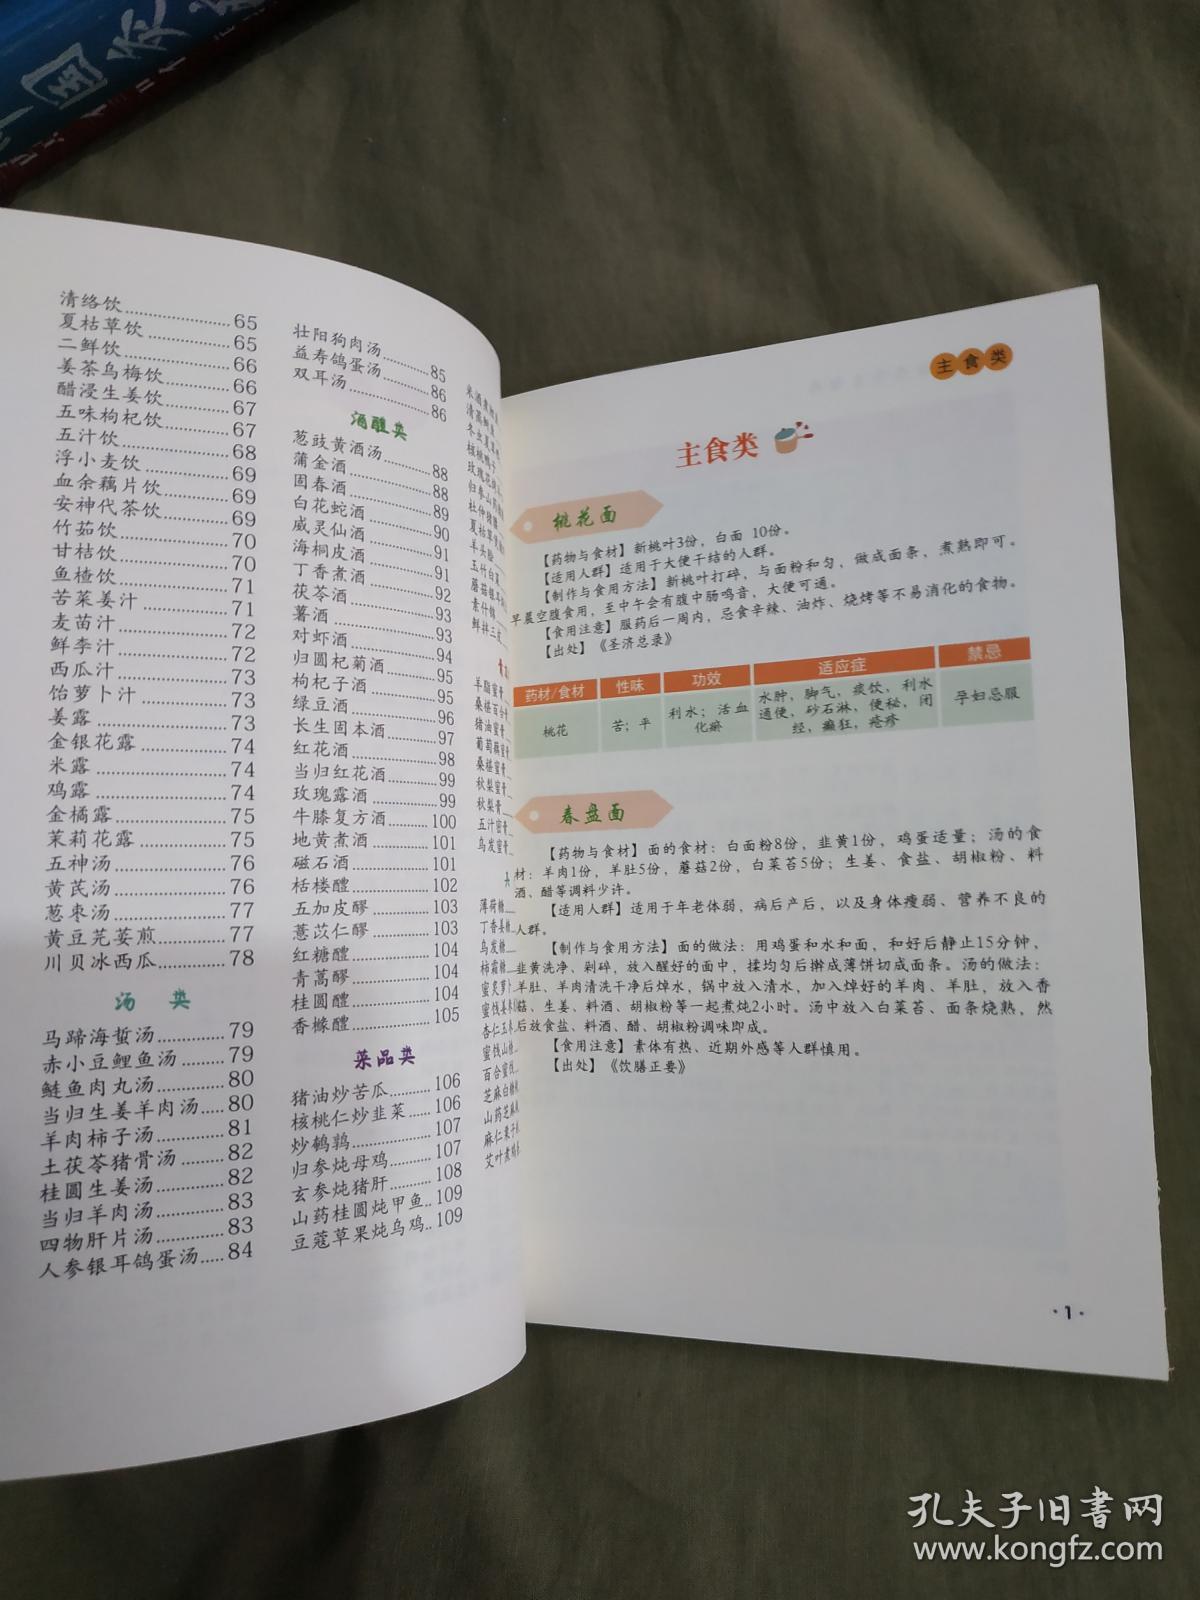 国
清络饮 65
夏枯草饮 65
二鲜饮 66
姜茶乌梅饮 66
醋浸生姜饮 67
五味枸杞饮 67
五汁饮 68
浮小麦饮 69
血余藕片饮 69
安神代茶饮 69
竹茹饮 70
甘桔饮 70
鱼楂饮 71
苦菜姜汁 71
麦苗汁 72
鲜李汁 72
西瓜汁 73
饴萝卜汁 73
姜露 73
金银花露 74
米露 74
鸡露 74
金橘露 75
茉莉花露 75
五神汤 76
黄芪汤 76
葱枣汤 77
黄豆芫荽煎 77
川贝冰西瓜 78
汤 类
马蹄海蜇汤 79
赤小豆鲤鱼汤 79
鲢鱼肉丸汤 80
当归生姜羊肉汤 80
羊肉柿子汤 81
土茯苓猪骨汤 82
桂圆生姜汤 82
当归羊肉汤 83
四物肝片汤 83
人参银耳鸽蛋汤 84
壮阳狗肉汤 85
益寿鸽蛋汤 86
双耳汤 86
酒醴类
葱豉黄酒汤 88
蒲金酒 88
固春酒 89
白花蛇酒 90
威灵仙酒 91
海桐皮酒 91
丁香煮酒 92
茯苓酒 93
薯酒 93
对虾酒 94
归圆杞菊酒 95
枸杞子酒 95
绿豆酒 96
长生固本酒 97
红花酒 98
当归红花酒 99
玫瑰露酒 99
牛膝复方酒 100
地黄煮酒 101
磁石酒 101
栝楼醴 102
五加皮醪 103
薏苡仁醪 103
红糖醴 104
青蒿醪 104
桂圆醴 104
香橼醴 105
菜品类
猪油炒苦瓜 106
核桃仁炒韭菜 106
炒鹌鹑 107
归参炖母鸡 107
玄参炖猪肝 108
山药桂圆炖甲鱼 109
豆蔻草果炖乌鸡 109
核桃鸭子
羊头脍
素什锦
羊脂蜜膏
桑椹百合膏
猪油蜜膏
葡萄藕蜜膏
桑椹蜜膏
秋梨蜜膏
秋梨膏
五汁蜜膏
乌发蜜膏
薄荷糖
丁香姜糖
乌发糖
柿霜糖
主食类
主食类
桃花面
【药物与食材】新桃叶3份，白面 10份。
【适用人群】适用于大便干结的人群。
【制作与食用方法】新桃叶打碎，与面粉和匀，做成面条，煮熟即可。
早晨空腹食用，至中午会有腹中肠鸣音、大便可通。
【食用注意】服药后一周内，忌食辛辣、油炸、烧烤等不易消化的食物。
【出处】《圣济总录》
药材/食材 性味 功效 适应症 禁忌
桃花 苦；平 利水；活血化瘀 水肿，脚气，痰饮，利水通便，砂石淋，便秘，闭经，癫狂，疮疹 孕妇忌服
春盘面
【药物与食材】面的食材：白面粉8份，韭黄1份，鸡蛋适量；汤的食
材：羊肉1份，羊肚5份，蘑菇2份，白菜苔5份；生姜、食盐、胡椒粉、料
酒、醋等调料少许。
【适用人群】适用于年老体弱，病后产后，以及身体瘦弱、营养不良的
人群。
【制作与食用方法】面的做法：用鸡蛋和水和面，和好后静止15分钟，
韭黄洗净、剁碎，放入醒好的面中，揉均匀后擀成薄饼切成面条。汤的做法：
羊肚、羊肉清洗干净后焯水，锅中放入清水，加入焯好的羊肉、羊肚，放入香
菇、生姜、料酒、胡椒粉等一起煮炖2小时。汤中放入白菜苔、面条烧熟，然
后放食盐、料酒、醋、胡椒粉调味即成。
【食用注意】素体有热、近期外感等人群慎用。
【出处】《饮膳正要》
·1·
孔夫子旧书网
www.kongfz.com